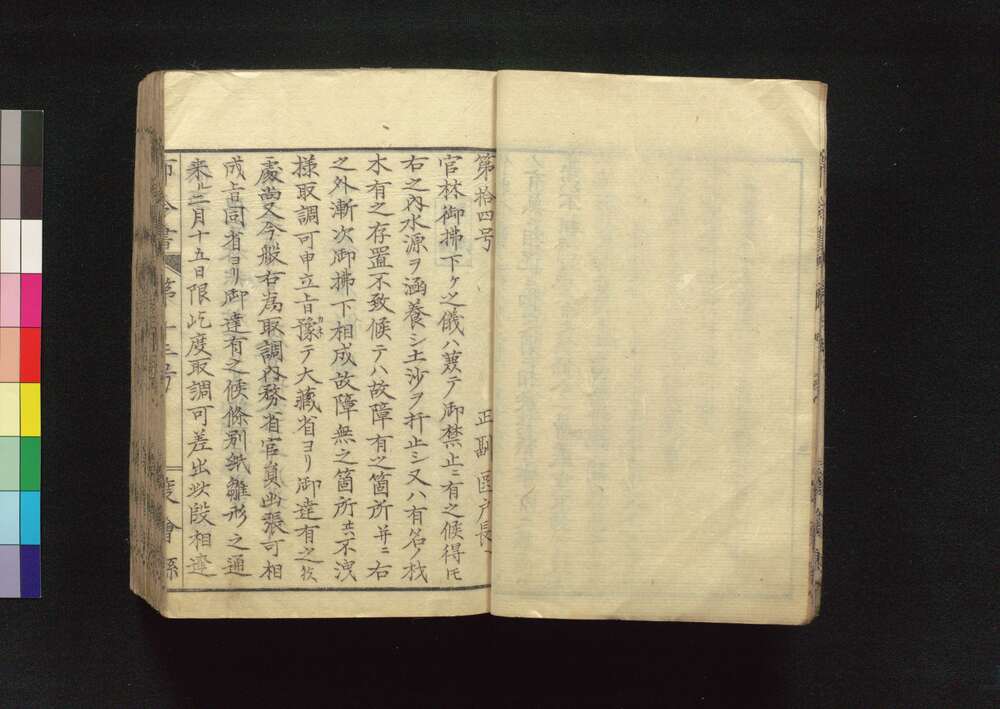 第拾四号
正副 区戸長
官林御拂下ケ之儀ハ兼テ御禁止ニ有之候得𪜈
右之内水源ヲ涵養シ土沙ヲ扞止シ又ハ有名ノ材
木有之存置不致候テハ故障有之箇所并ニ右
之外漸次御拂下相成故障無之箇所共不洩
様取調可申立旨豫テ大藏省ヨリ御達有之
カネ
處尚又今般右為取調内務省官員出張可相
成旨同省ヨリ御達有之候條別紙雛形之通
来ル二月十五日限屹度取調可差出此段相達
布令書 第十三号 度會縣